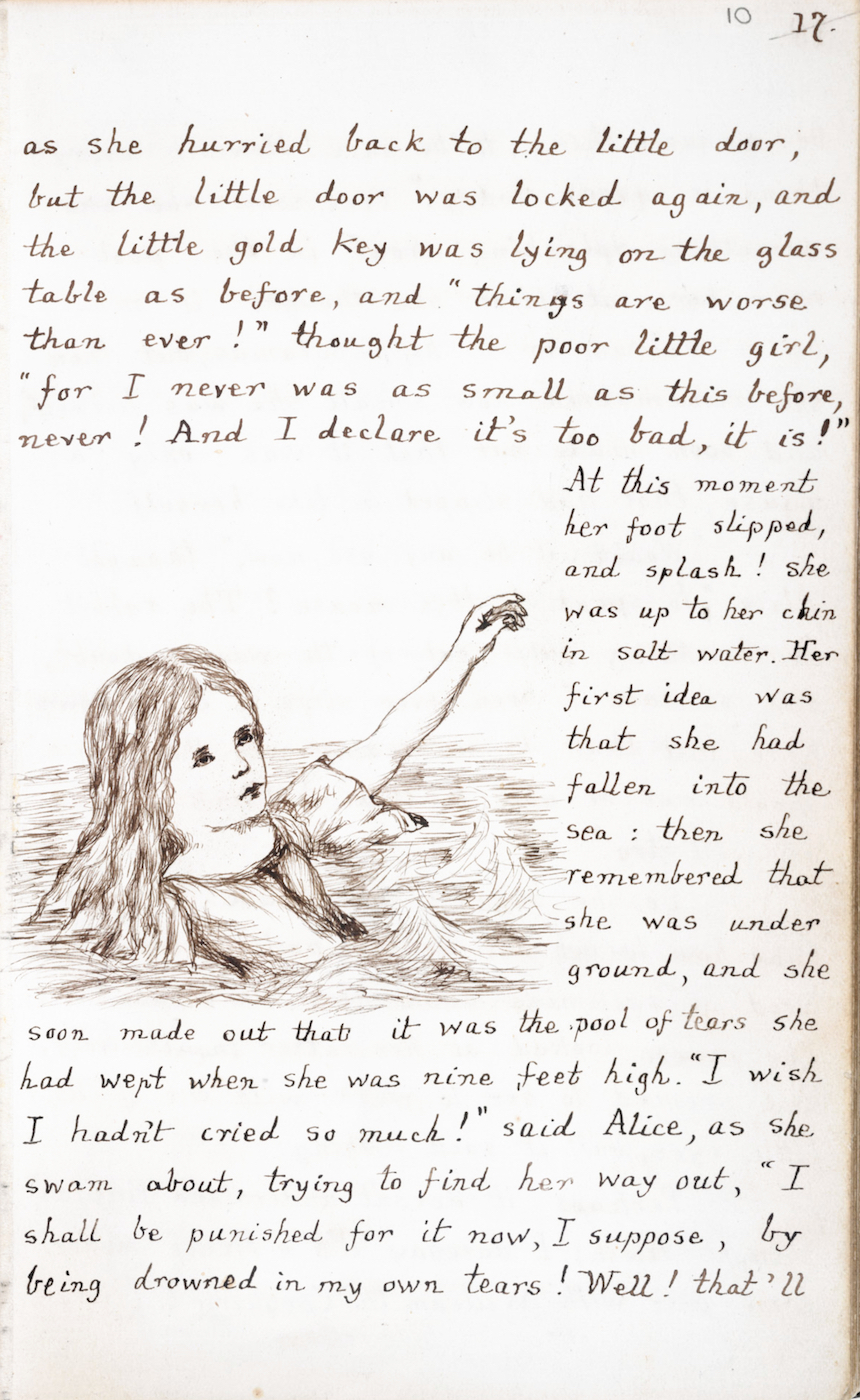 10 17.
as she hurried back to the little door,
but the little door was locked again, and
the little gold key was lying on the glass
table as before, and "things are worse
than ever!" thought the poor little girl,
"for I never was as small as this before,
never! And I declare it's too bad, it is!"
At this moment
her foot slipped,
and splash! she
was up to her chin
in salt water. Her
first idea was
that she had
fallen into the
sea: then she
remembered that
she was under
ground, and she
soon made out that it was the pool of tears she
had wept when she was nine feet high. "I wish
I hadn't cried so much!" said Alice, as she
swam about, trying to find her way out, "I
shall be punished for it now, I suppose, by
being drowned in my own tears! Well! that'll